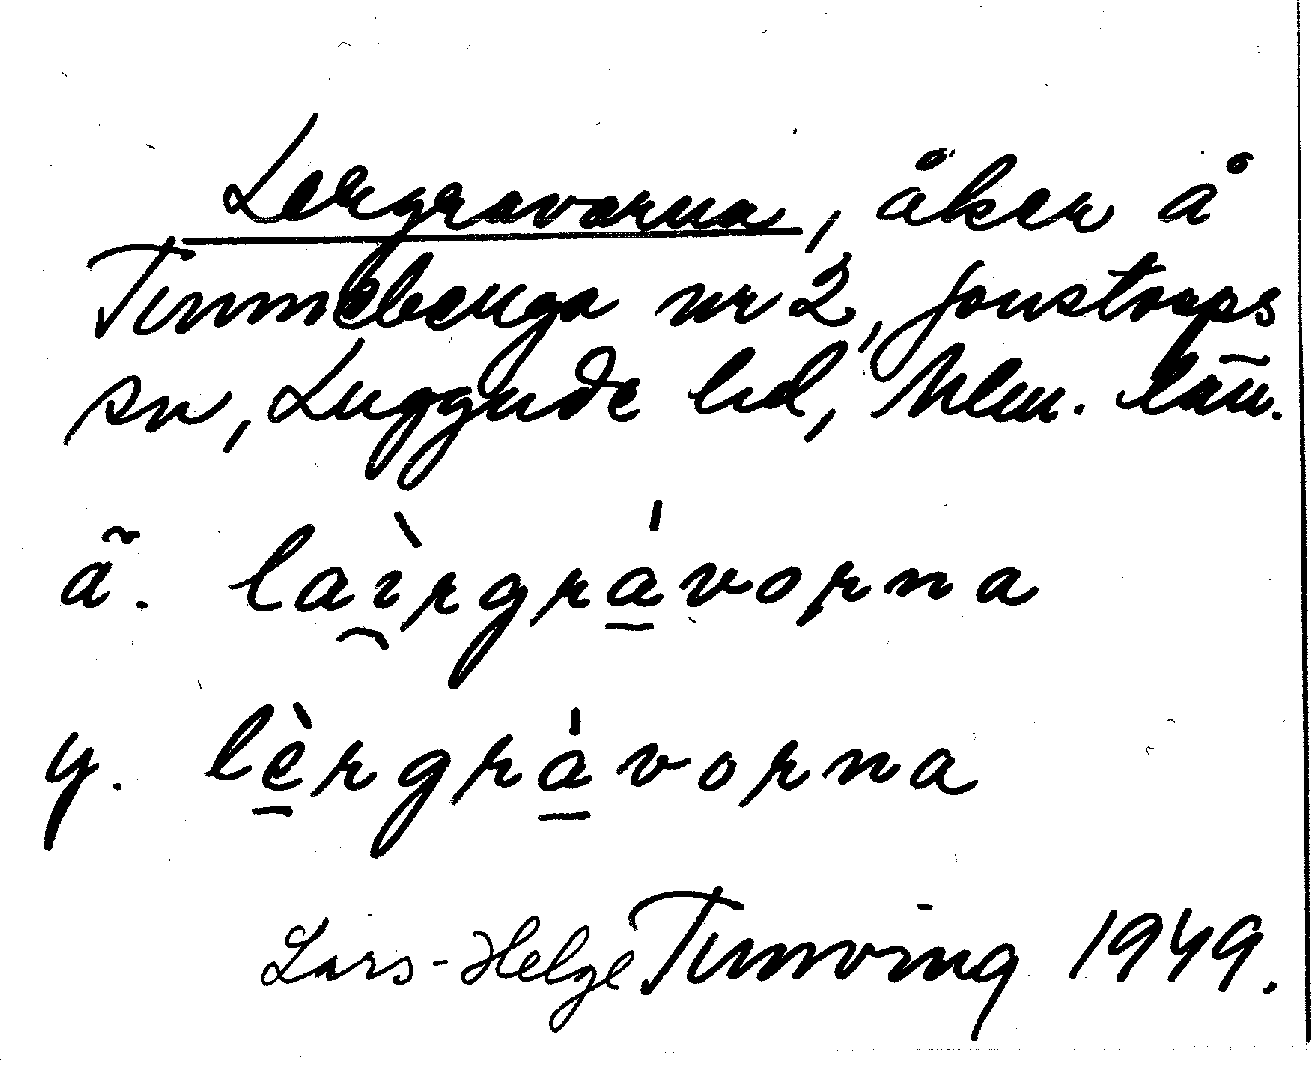 Lergravarna, åker å
Tunneberga nr 2, Jonstorps
sn, Luggude hd, Mlm. län.
ä. laìrgrávorna
y. lèrgrávorna
Lars-Helge Tunving 1949.